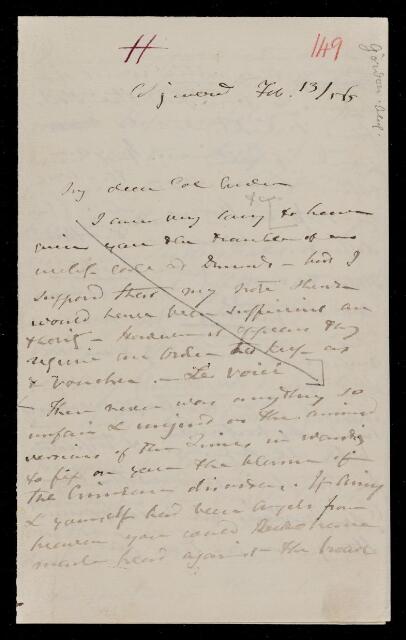 149
Feb. 13/56
My dear Col Gordon
I am very sorry to have
given you the trouble of an
- but I
supposed that my note there
would have been sufficient au
thority - However it appears they
require an order to keep as
a voucher - Le voici
There never was anything so
unfair & unjust as the
versions of the Times in wanting
to fix on you the blame of
the Crimean disasters. If Airey
& yourself had been angels from
heaven you could not have
made head against the